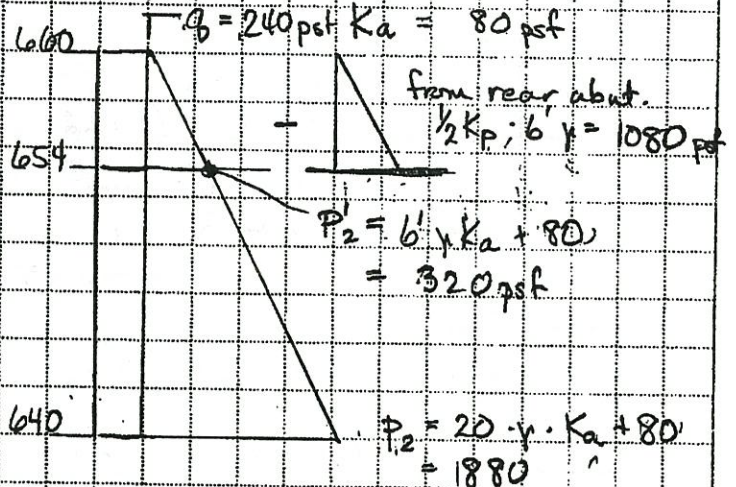 q = 240 psf Ka = 80 psf
660
from rear abut.
1/2 Kp; 6' γ = 1080 psf
-
654
P'2 = 6' γ Ka + 80
= 320 psf
640
P2 = 20 · γ · Ka + 80
= 1880